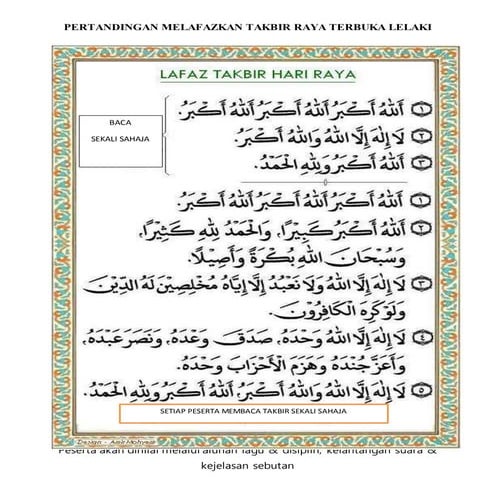 PERTANDINGAN MELAFAZKAN TAKBIR RAYA TERBUKA LELAKI
LAFAZ TAKBIR HARI RAYA
BACA
SEKALI SAHAJA
١ اَللهُ أَكْبَرُ اَللهُ أَكْبَرُ اَللهُ أَكْبَرُ.
٢ لَا إِلٰهَ إِلَّا اللهُ وَاللهُ أَكْبَرُ.
٣ اَللهُ أَكْبَرُ وَلِلّٰهِ الْحَمْدُ.
١ اَللهُ أَكْبَرُ اَللهُ أَكْبَرُ اَللهُ أَكْبَرُ.
٢ اَللهُ أَكْبَرُ كَبِيْرًا، وَالْحَمْدُ لِلّٰهِ كَثِيْرًا،
وَسُبْحَانَ اللهِ بُكْرَةً وَأَصِيْلًا.
٣ لَا إِلٰهَ إِلَّا اللهُ وَلَا نَعْبُدُ إِلَّا إِيَّاهُ مُخْلِصِيْنَ لَهُ الدِّيْنَ
وَلَوْ كَرِهَ الْكَافِرُوْنَ.
٤ لَا إِلٰهَ إِلَّا اللهُ وَحْدَهُ، صَدَقَ وَعْدَهُ، وَنَصَرَ عَبْدَهُ،
وَأَعَزَّ جُنْدَهُ وَهَزَمَ الْأَحْزَابَ وَحْدَهُ.
٥ لَا إِلٰهَ إِلَّا اللهُ وَاللهُ أَكْبَرُ، اَللهُ أَكْبَرُ وَلِلّٰهِ الْحَمْدُ.
SETIAP PESERTA MEMBACA TAKBIR SEKALI SAHAJA
Design - Amir Mohyeid
Peserta akan dinilai melalui alunan lagu & disiplin, kelantangan suara &
kejelasan sebutan